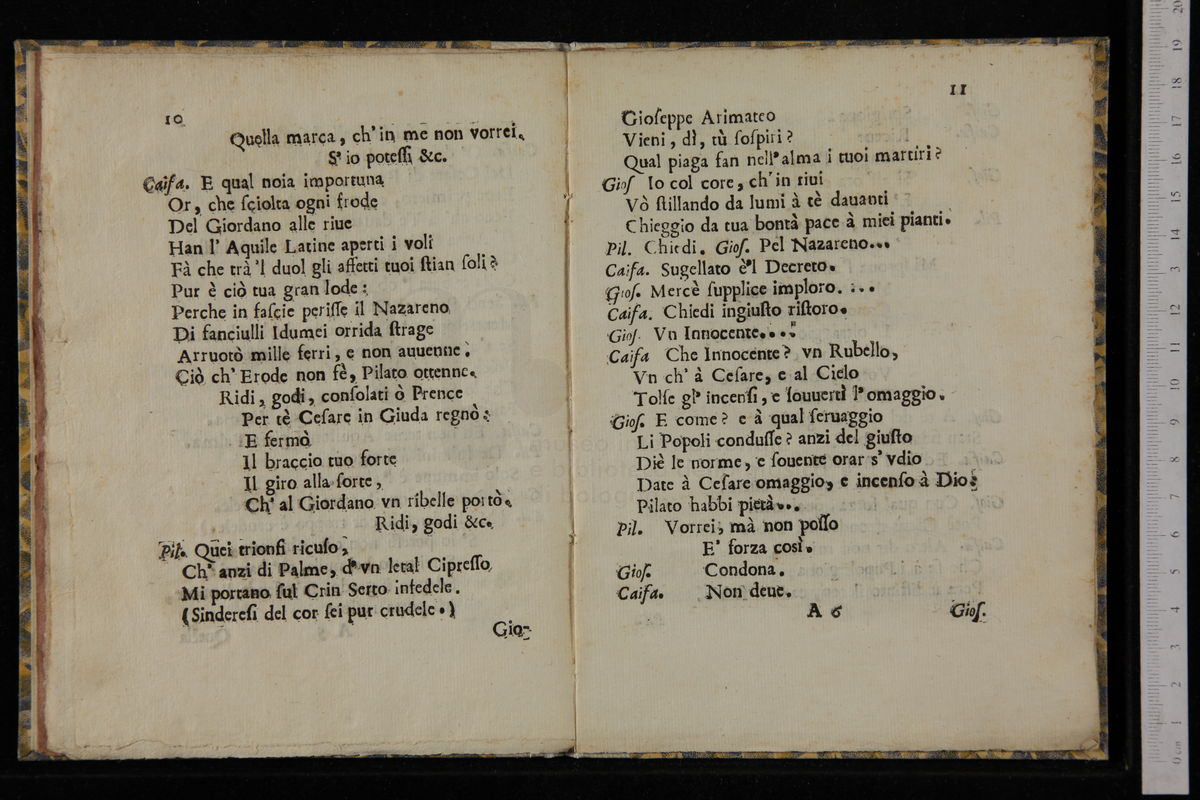 10
Quella marca, ch'in me non vorrei.
S'io potessi &c.
Caifa. E qual noia importuna
Or, che sciolta ogni frode
Del Giordano alle riue
Han l'Aquile Latine aperti i voli
Fà che trà'l duol gli affetti tuoi stian soli?
Pur è ciò tua gran lode:
Perche in fascie perisse il Nazareno
Di fanciulli Idumei orrida strage
Arruotò mille ferri, e non auuenne.
Ciò ch'Erode non fè, Pilato ottenne.
Ridi, godi, consolati ò Prence
Per tè Cesare in Giuda regnò:
E fermò
Il braccio tuo forte
Il giro alla sorte,
Ch'al Giordano vn ribelle portò.
Ridi, godi &c.
Pil. Quei trionfi ricuso,
Ch'anzi di Palme, d'vn letal Cipresso
Mi portano sul Crin Serto infedele.
(Sinderesi del cor sei pur crudele.)
Gio-
11
Gioseppe Arimateo
Vieni, dì, tù sospiri?
Qual piaga fan nell'alma i tuoi martiri?
Gios Io col core, ch'in riui
Vò stillando da lumi à tè dauanti
Chieggio da tua bontà pace à miei pianti.
Pil. Chiedi. Gios. Pel Nazareno...
Caifa. Sugellato è'l Decreto.
Gios. Mercè supplice imploro. ...
Caifa. Chiedi ingiusto ristoro.
Gios. Vn Innocente....
Caifa Che Innocente? vn Rubello,
Vn ch'à Cesare, e al Cielo
Tolse gl'incensi, e souuertì l'omaggio.
Gios. E come? e à qual seruaggio
Li Popoli condusse? anzi del giusto
Diè le norme, e souente orar s'vdio
Date à Cesare omaggio, e incenso à Dio:
Pilato habbi pietà...
Pil. Vorrei, mà non posso
E' forza così.
Gios. Condona.
Caifa. Non deue.
A 6
Gios.